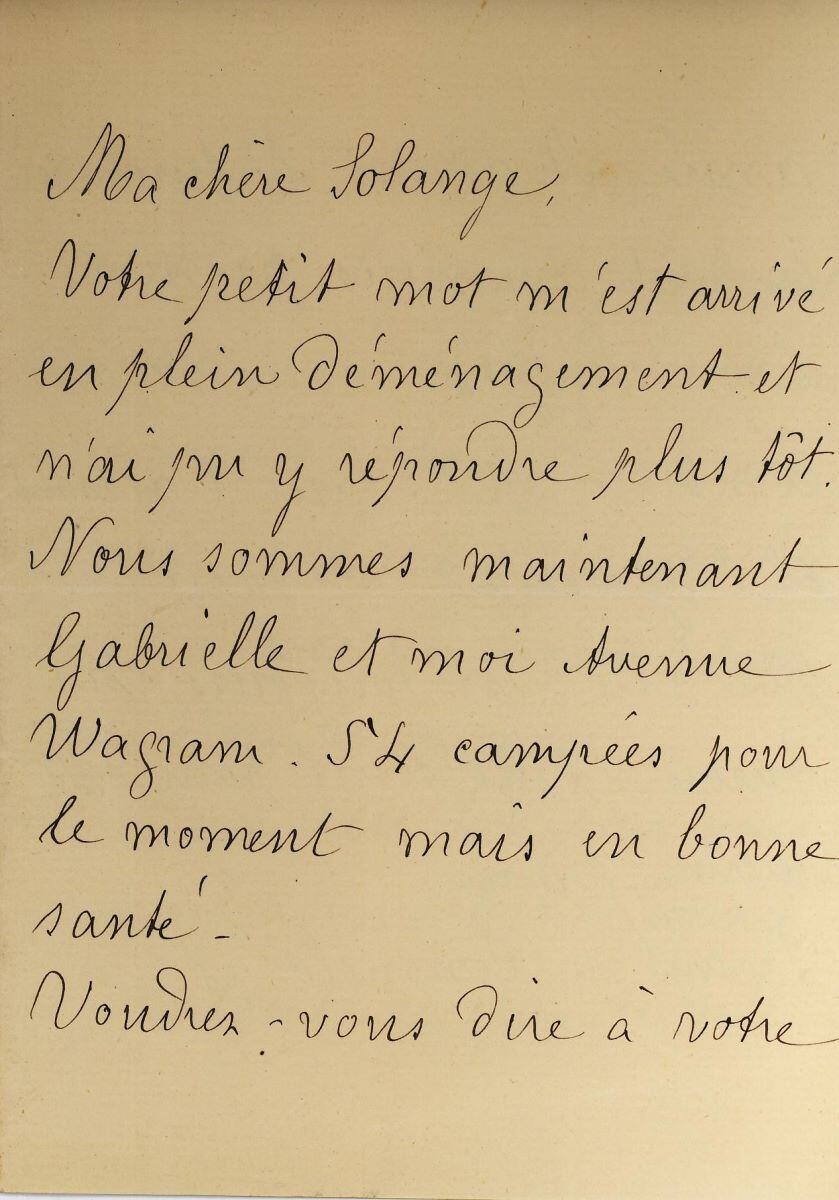 Ma chère Solange,
Votre petit mot m'est arrivé
en plein déménagement et
n'ai pu y répondre plus tôt.
Nous sommes maintenant
Gabrielle et moi Avenue
Wagram. 54 campées pour
le moment mais en bonne
santé -
Voudrez-vous dire à votre